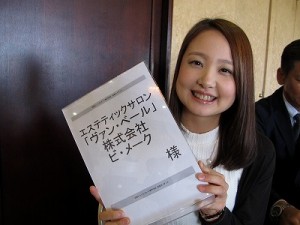 エステティックサロン
「ヴァン・ベール」
株式会社
ビ・メーク
様